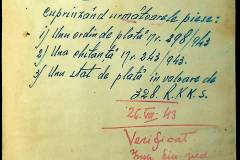 cuprinzând următoarele piese:
1) Unu ordin de plată Nr. 298/943
2) Una chitanță Nr. 343/943.
3) Unu stat de plată în valoare de
328. R.K.K.S.
26.VIII.43
Verificat